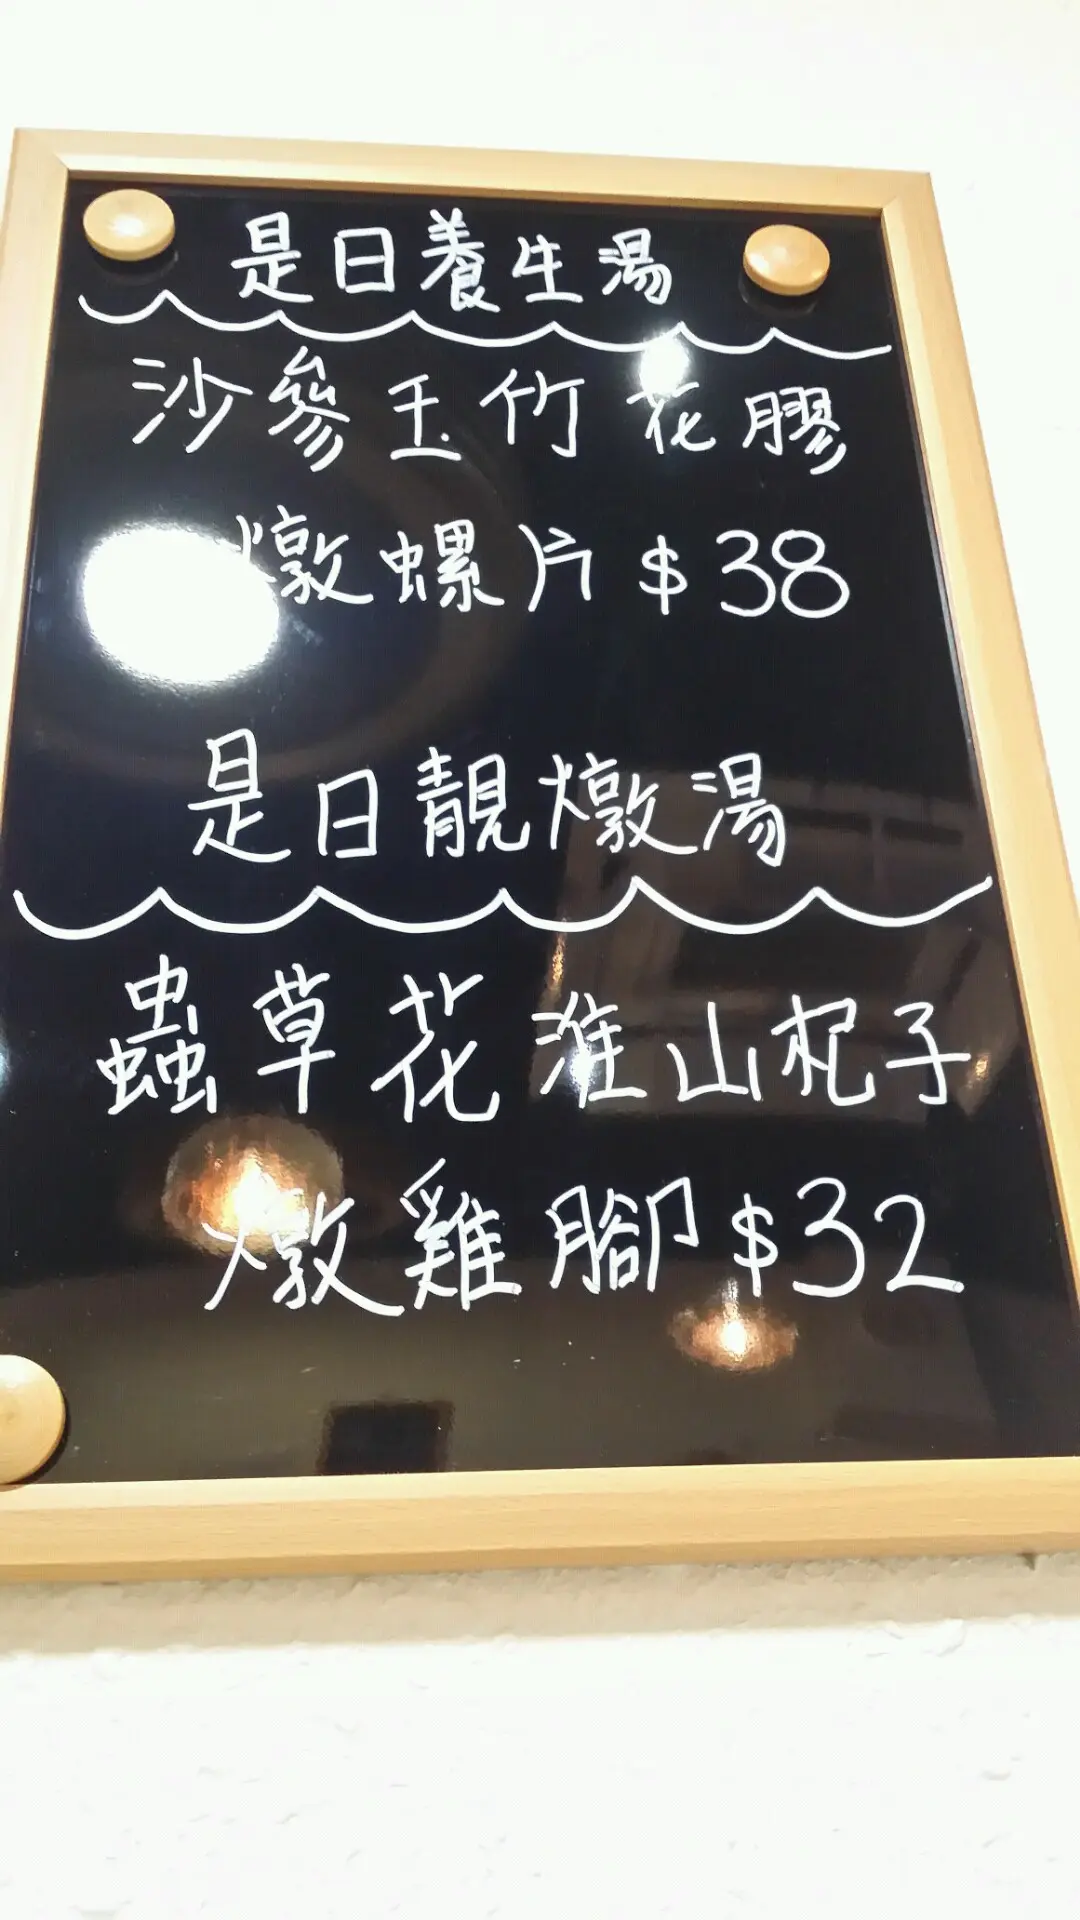 是日養生湯
沙參玉竹花膠
燉螺片 $38
是日靚燉湯
蟲草花淮山杞子
燉雞腳 $32